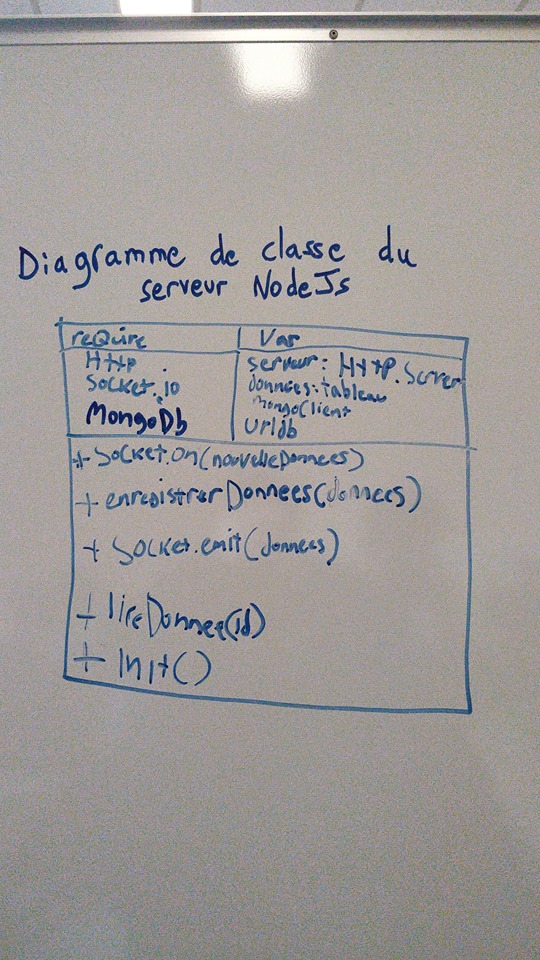 Diagramme de classe du
serveur NodeJs
reQuire
Http
Socket.io
MongoDb
Var
serveur: HttP.Server
donnees:tableau
mongoClient
Urldb
+ Socket.on(nouvelleDonnees)
+ enregistrerDonnees(donnees)
+ Socket.emit(donnees)
+ lireDonnee(id)
+ Init()